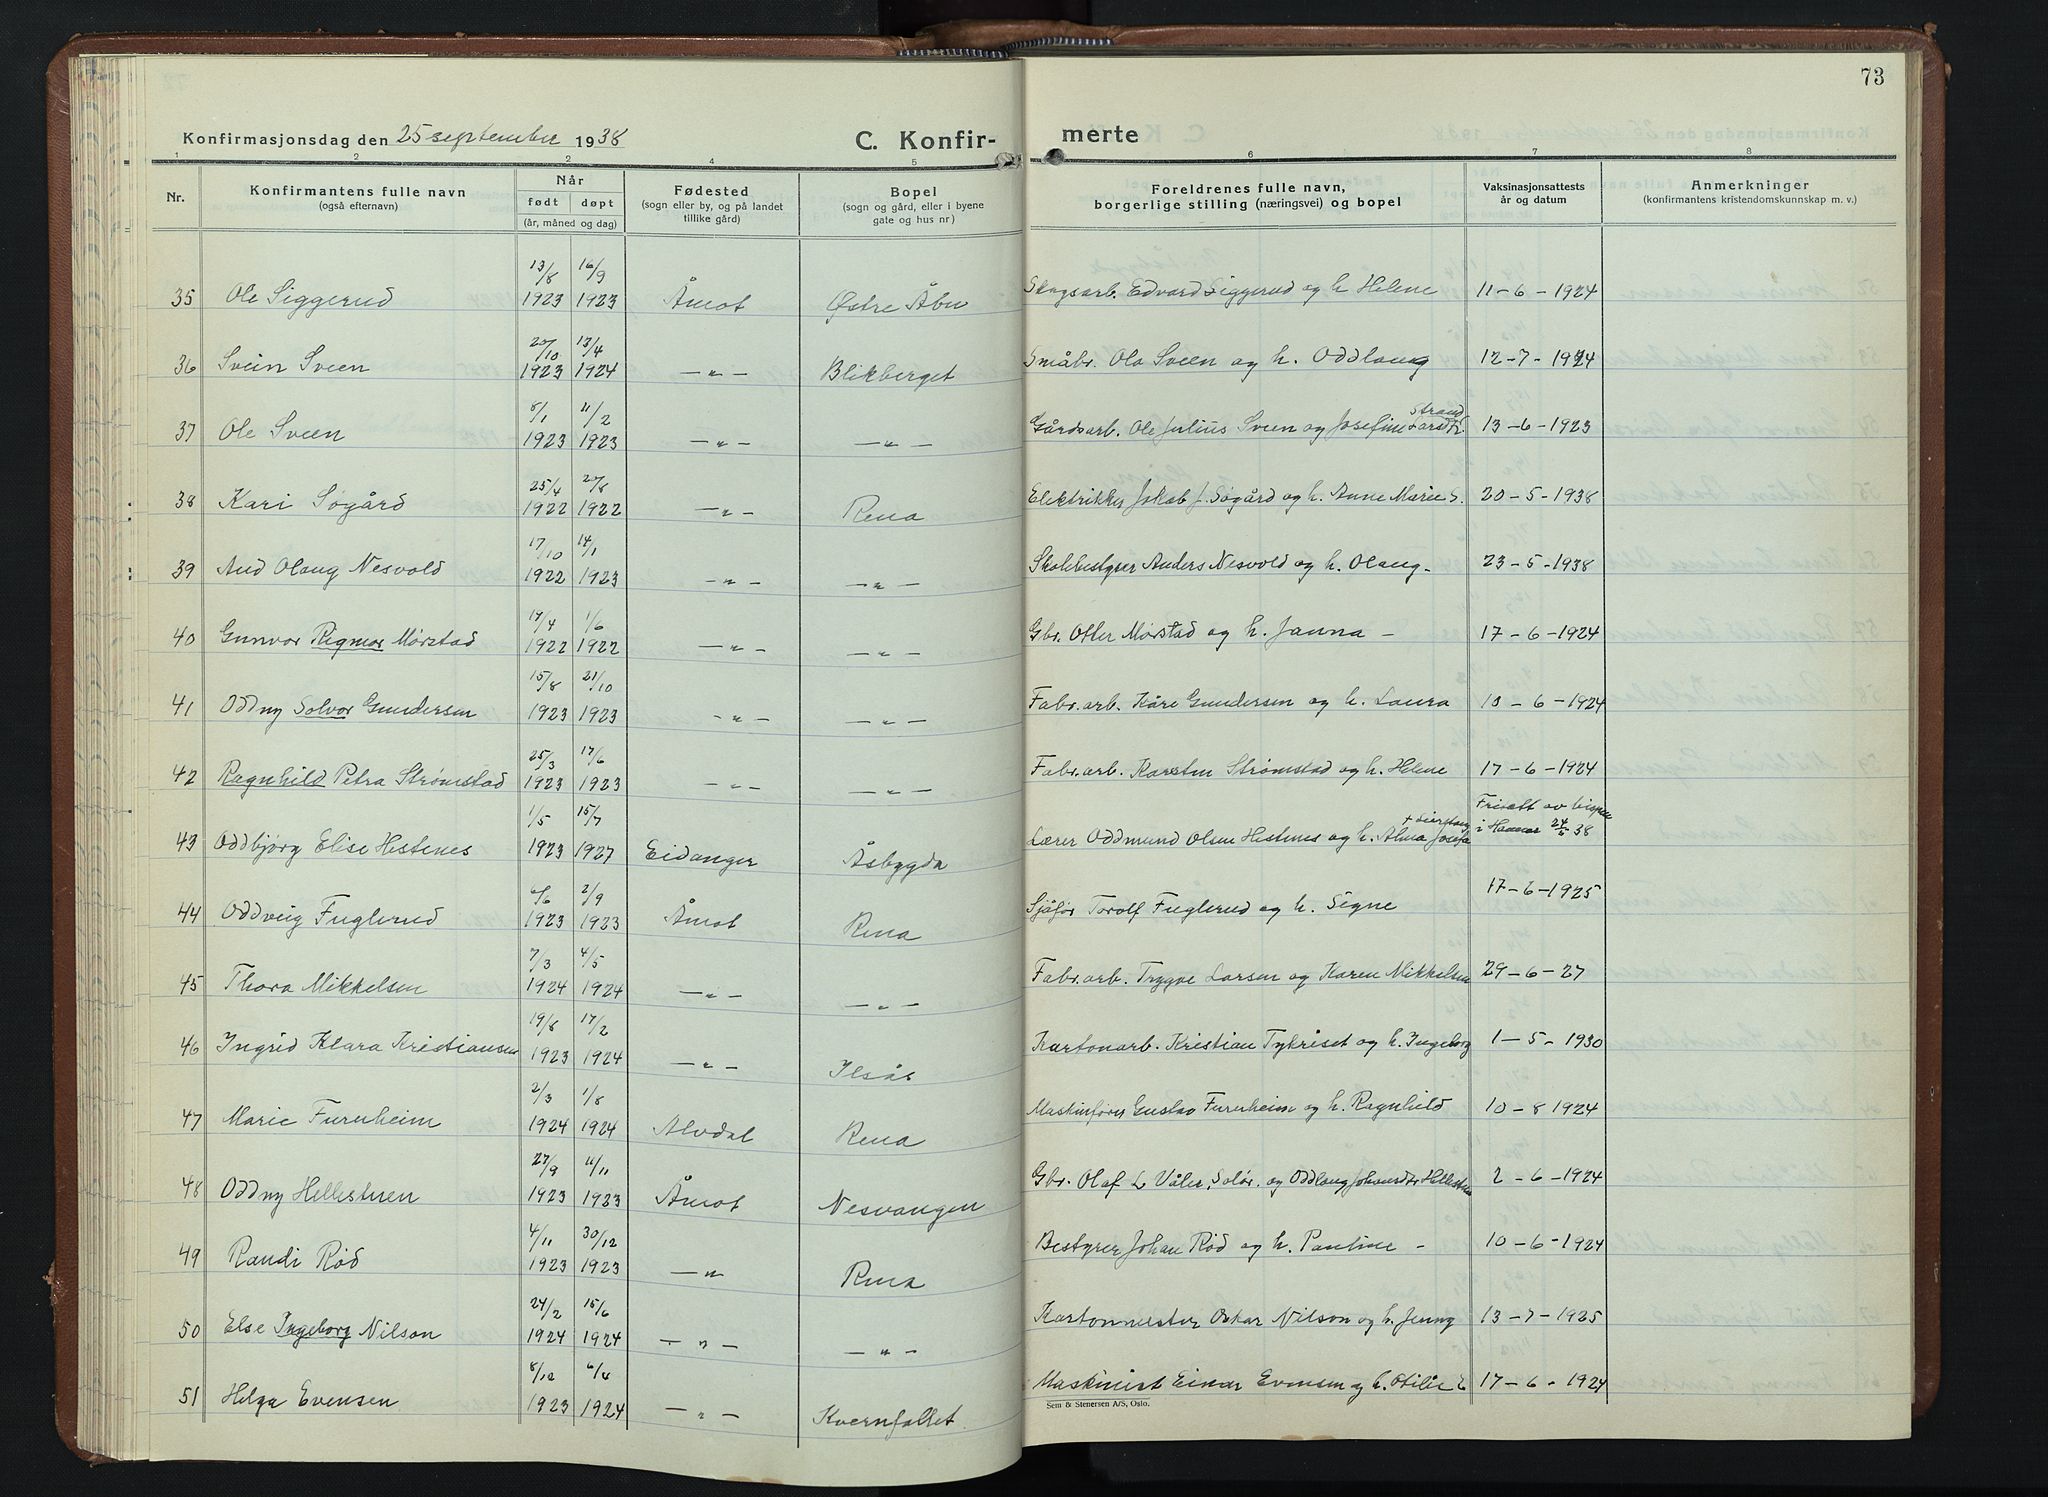 73
Konfirmasjonsdag den 25 september 1938
C. Konfir-
merte
1 2 2 4 5 6 7 8
Nr.
Konfirmantens fulle navn
(også efternavn)
Når
født døpt
(år, måned og dag)
Fødested
(sogn eller by, og på landet
tillike gård)
Bopel
(sogn og gård, eller i byene
gate og hus nr)
Foreldrenes fulle navn,
borgerlige stilling (næringsvei) og bopel
Vaksinasjonsattests
år og datum
Anmerkninger
(konfirmantens kristendomskunnskap m. v.)
13/8 16/9
35 Ole Siggerud 1923 1923 Åmot Østre Åbu Skogsarb. Edvard Siggerud og h. Helene 11-6-1924
20/10 13/4
36 Svein Sveen 1923 1924 —"— Blikberget Småbr. Ola Sveen og h. Oddlaug 12-7-1924
8/1 11/2 Strand
37 Ole Sveen 1923 1923 —"— —"— Gårdsarb. Ole Julius Sveen og Josefine Larsdtr. 13-6-1923
25/4 20/8
38 Kari Søgård 1922 1922 —"— Rena Elektriker Jakob J. Søgård og h. Anne Marie S. 20-5-1938
17/10 14/1
39 Aud Olaug Nesvold 1922 1923 —"— —"— Skolebestyrer Anders Nesvold og h. Olaug — 23-5-1938
17/4 1/6
40 Gunvor Rigmor Mørstad 1922 1922 —"— —"— Gbr. Otter Mørstad og h. Janna — 17-6-1924
15/8 21/10
41 Oddny Solvor Gundersen 1923 1923 —"— —"— Fabr.arb. Kåre Gundersen og h. Laura 10-6-1924
25/3 17/6
42 Ragnhild Petra Strømstad 1923 1923 —"— —"— Fabr.arb. Karsten Strømstad og h. Helene 17-6-1924
1/5 15/7 Fritatt av bispen
43 Oddbjørg Elise Hestenes 1923 1927 Eidanger Åsbygda Lærer Oddmund Olsen Hestenes og h. Alma Josefa i Hamar 24/5 38
6/6 2/9
44 Oddveig Fuglerud 1923 1923 Åmot Rena Sjåfør Torolf Fuglerud og h. Signe 17-6-1925
7/3 4/5
45 Thora Mikkelsen 1924 1924 —"— —"— Fabr.arb. Trygve Larsen og Karen Mikkelsen 29-6-27
19/8 17/2
46 Ingrid Klara Kristiansen 1923 1924 —"— Ilsås Kartonarb. Kristian Tykriset og h. Ingeborg 1-5-1930
2/3 1/8
47 Marie Furuheim 1924 1924 Alvdal Rena Maskinfører Gustav Furuheim og h. Ragnhild 10-8 1924
27/9 11/11
48 Oddny Hellestuen 1923 1923 Åmot Nesvangen Gbr. Olaf L Våler, Solør. og Oddlaug Johansdtr Hellestuen 2-6-1924
4/11 30/12
49 Randi Rød 1923 1923 —"— Rena Bestyrer Johan Rød og h. Pauline — 10-6-1924
24/2 15/6
50 Else Ingeborg Nilson 1924 1924 —"— —"— Kartonmester Oskar Nilson og h. Jenny 13-7-1925
8/12 6/4
51 Helga Evensen 1923 1924 —"— Kvernfallet. Maskinist Einar Evensen og h. Otilie E 17-6-1924
Sem & Stenersen A/S, Oslo.